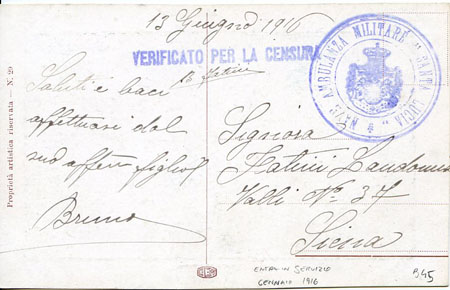 13 Giugno 1916
VERIFICATO PER LA CENSURA
NAVE AMBULANZA MILITARE "SANTA LUCIA"
Saluti e baci
affettuosi dal
suo aff
Bruno
Signora
Fatini Landomia
Valli N° 37
Siena
Proprietà artistica riservata — N. 20
ENTRA IN SERVIZIO
GENNAIO 1916
B45